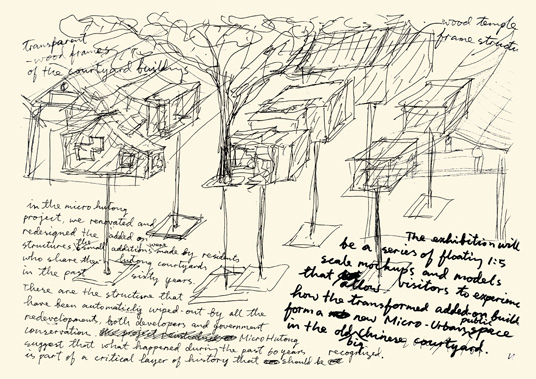 transparent
- wood frames
of the courtyard buildings
wood temple
frame structu
in the micro hutong
project, we renovated and
redesigned the added on
structures, the small additions were made by residents
who share the hutong courtyards
in the past sixty years.
These are the structure that
have been automaticly wiped-out by all the
redevelopment, both developers and government
conservation. Micro Hutong
suggest that what happened during the past 60 years
is part of a critical layer of history that should be
recognized.
The exhibition will
be a series of floating 1:5
scale mockups and models
that allow visitors to experience
how the transformed added-on build
form a new Micro-Urban public space
in the old Chinese courtyard.
big